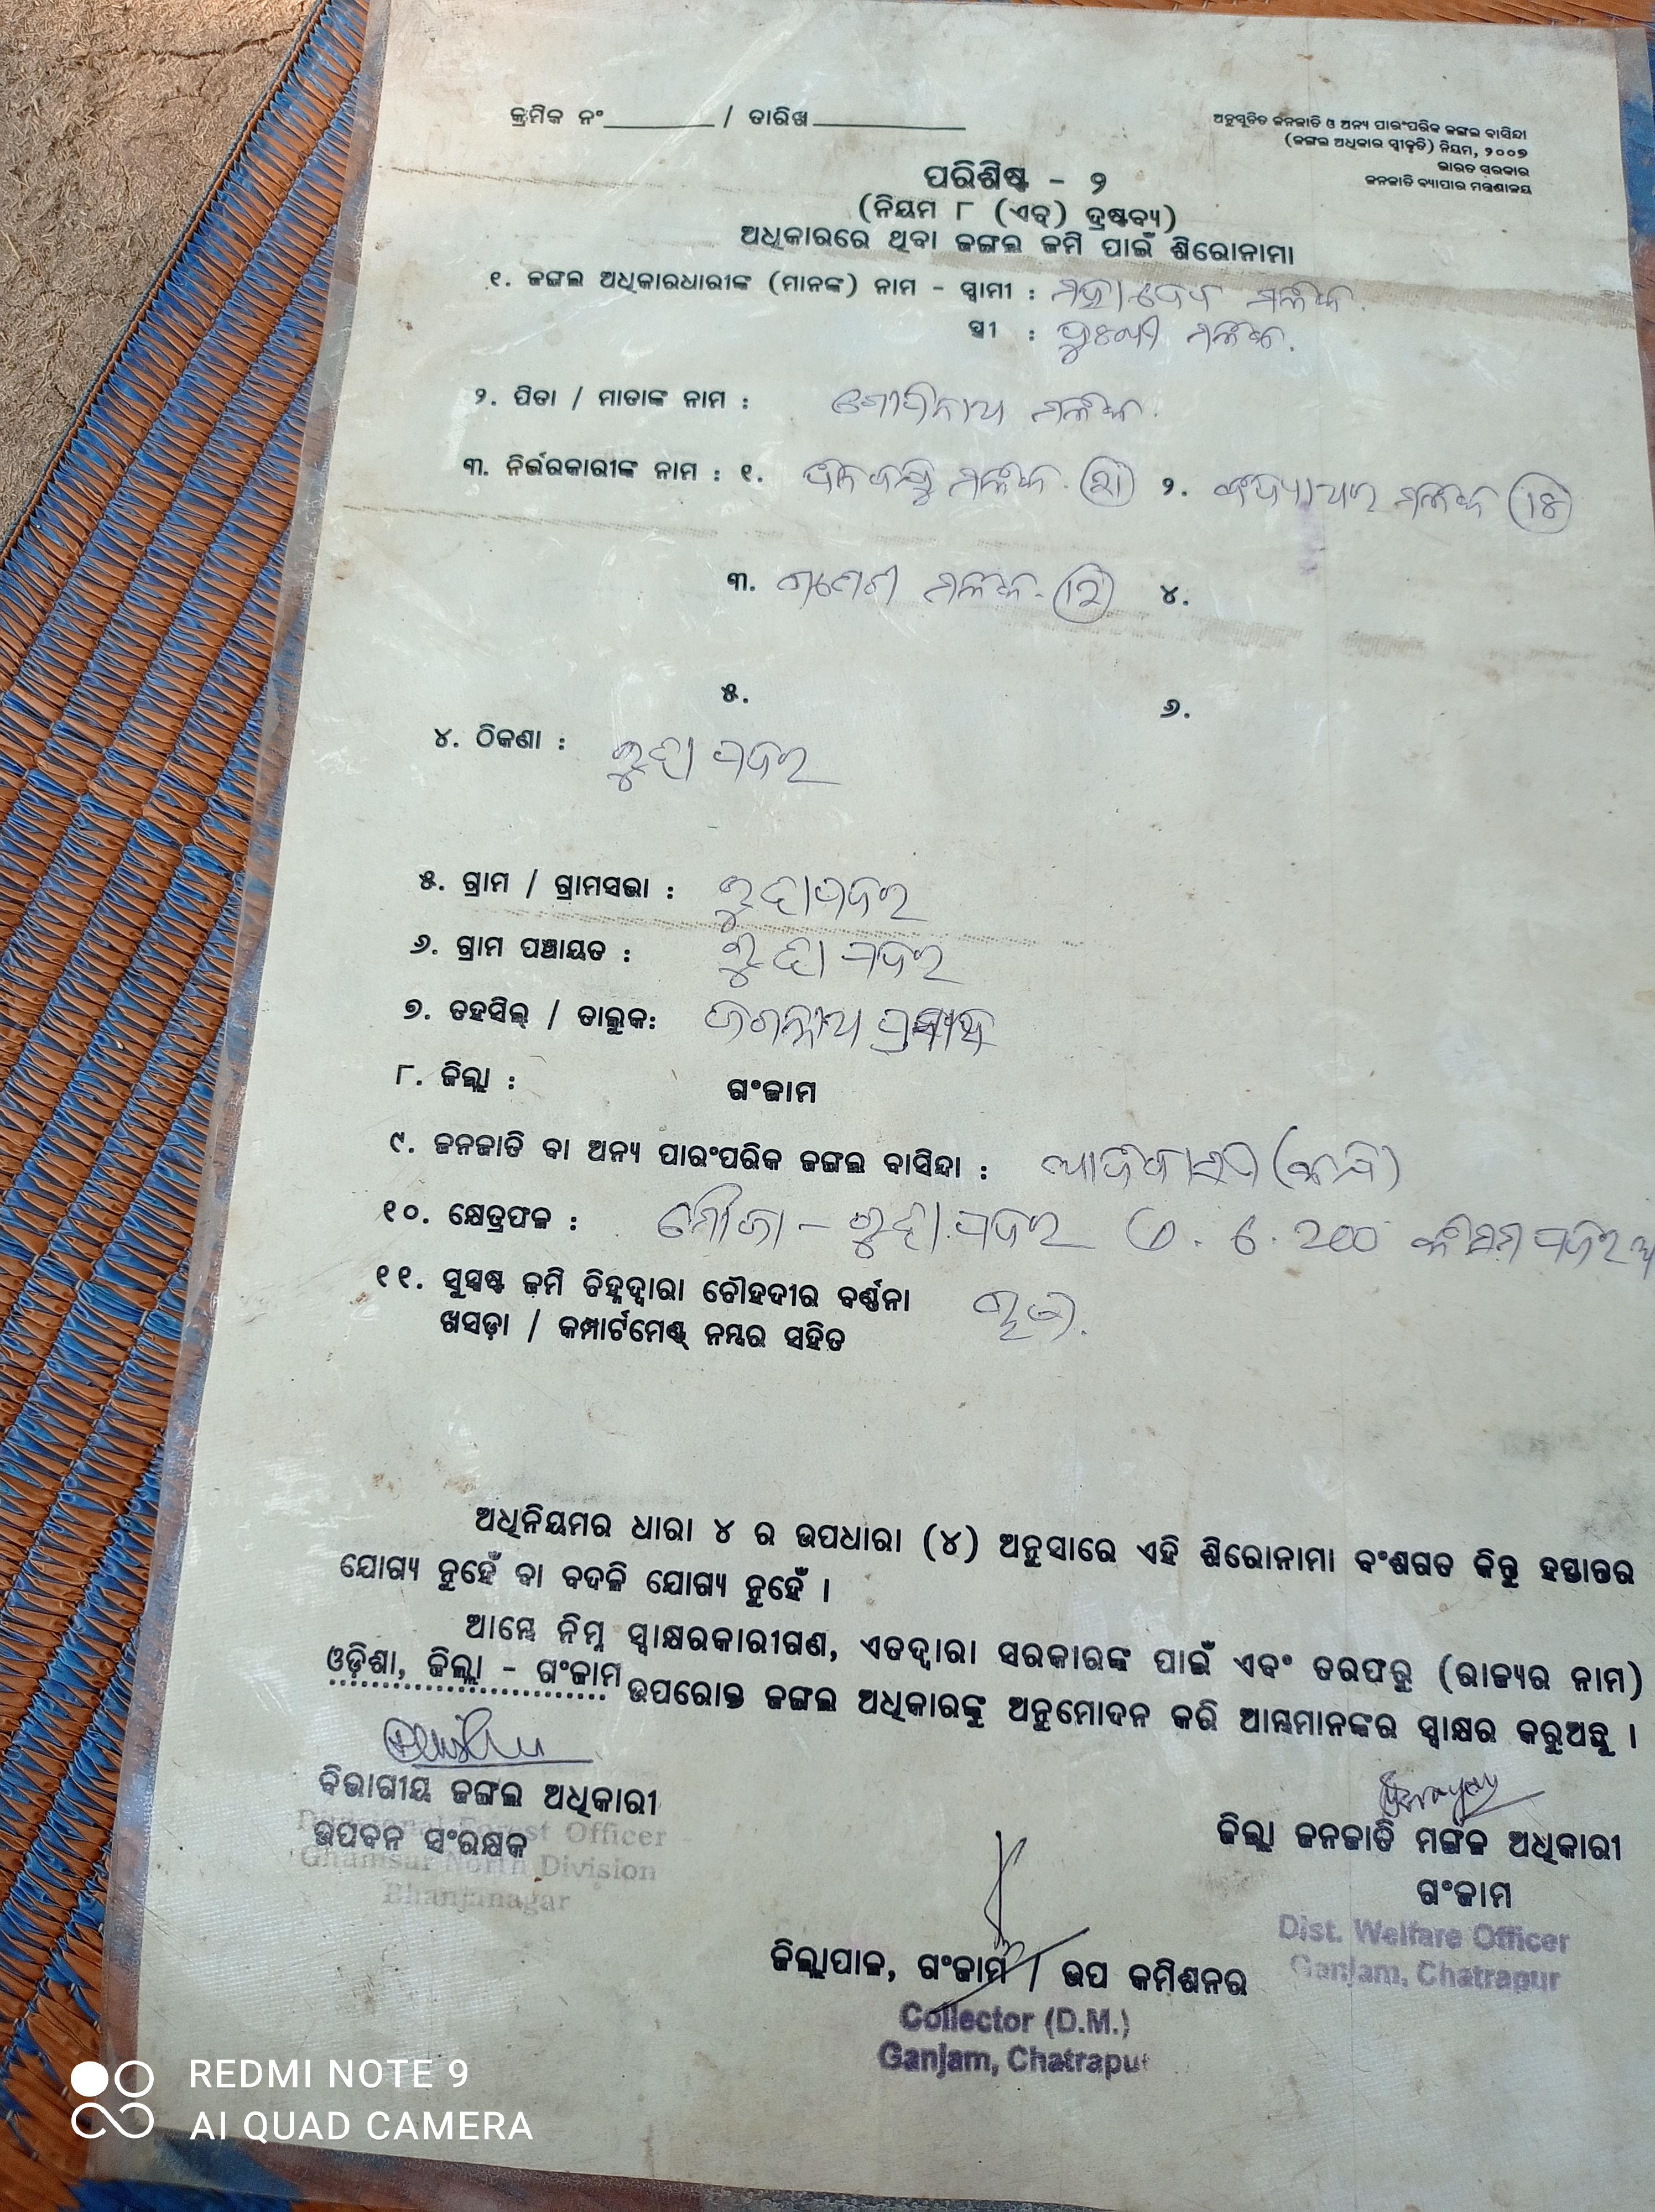 କ୍ରମିକ ନଂ________ / ତାରିଖ___________
ଅନୁସୂଚିତ ଜନଜାତି ଓ ଅନ୍ୟ ପାରଂପରିକ ଜଙ୍ଗଲ ବାସିନ୍ଦା
(ଜଙ୍ଗଲ ଅଧିକାର ସ୍ୱୀକୃତି) ନିୟମ, ୨୦୦୭
ଭାରତ ସରକାର
ଜନଜାତି ବ୍ୟାପାର ମନ୍ତ୍ରଣାଳୟ
ପରିଶିଷ୍ଟ - ୨
(ନିୟମ ୮ (ଏଚ୍) ଦ୍ରଷ୍ଟବ୍ୟ)
ଅଧିକାରରେ ଥିବା ଜଙ୍ଗଲ ଜମି ପାଇଁ ଶିରୋନାମା
୧. ଜଙ୍ଗଲ ଅଧିକାରଧାରୀଙ୍କ (ମାନଙ୍କ) ନାମ - ସ୍ୱାମୀ : ମହାଦେବ ମଲିକ.
ସ୍ତ୍ରୀ : ମଲିକ.
୨. ପିତା / ମାତାଙ୍କ ନାମ : ଗୋପିନାଥ ମଲିକ.
୩. ନିର୍ଭରକାରୀଙ୍କ ନାମ : ୧. ମଲିକ. ୨. ମଲିକ
୩. ଗଣେଶ ମଲିକ. ୪.
୫. ୬.
୪. ଠିକଣା :
୫. ଗ୍ରାମ / ଗ୍ରାମସଭା :
୬. ଗ୍ରାମ ପଞ୍ଚାୟତ :
୭. ତହସିଲ୍ / ତାଲୁକ: ଜଗନ୍ନାଥ ପ୍ରସାଦ
୮. ଜିଲ୍ଲା : ଗଂଜାମ
୯. ଜନଜାତି ବା ଅନ୍ୟ ପାରଂପରିକ ଜଙ୍ଗଲ ବାସିନ୍ଦା : ଆଦିବାସୀ (କନ୍ଧ)
୧୦. କ୍ଷେତ୍ରଫଳ : ମୌଜା -
୧୧. ସୁସ୍ପଷ୍ଟ ଜମି ଚିହ୍ନଦ୍ୱାରା ଚୌହଦୀର ବର୍ଣ୍ଣନା
ଖସଡ଼ା / କମ୍ପାର୍ଟମେଣ୍ଟ୍ ନମ୍ବର ସହିତ
ଅଧିନିୟମର ଧାରା ୪ ର ଉପଧାରା (୪) ଅନୁସାରେ ଏହି ଶିରୋନାମା ବଂଶଗତ କିନ୍ତୁ ହସ୍ତାନ୍ତର
ଯୋଗ୍ୟ ନୁହେଁ ବା ବଦଳି ଯୋଗ୍ୟ ନୁହେଁ ।
ଆମ୍ଭେ ନିମ୍ନ ସ୍ୱାକ୍ଷରକାରୀଗଣ, ଏତଦ୍ୱାରା ସରକାରଙ୍କ ପାଇଁ ଏବଂ ତରଫରୁ (ରାଜ୍ୟର ନାମ)
ଓଡ଼ିଶା, ଜିଲ୍ଲା - ଗଂଜାମ ଉପରୋକ୍ତ ଜଙ୍ଗଲ ଅଧିକାରଙ୍କୁ ଅନୁମୋଦନ କରି ଆମ୍ଭମାନଙ୍କର ସ୍ୱାକ୍ଷର କରୁଅଛୁ ।
ବିଭାଗୀୟ ଜଙ୍ଗଲ ଅଧିକାରୀ
ଉପବନ ସଂରକ୍ଷକ
Divisional Forest Officer
Ghumsur North Division
Bhanjanagar
ଜିଲ୍ଲା ଜନଜାତି ମଙ୍ଗଳ ଅଧିକାରୀ
ଗଂଜାମ
Dist. Welfare Officer
Ganjam, Chatrapur
ଜିଲ୍ଲାପାଳ, ଗଂଜାମ / ଉପ କମିଶନର
Collector (D.M.)
Ganjam, Chatrapur
REDMI NOTE 9
AI QUAD CAMERA